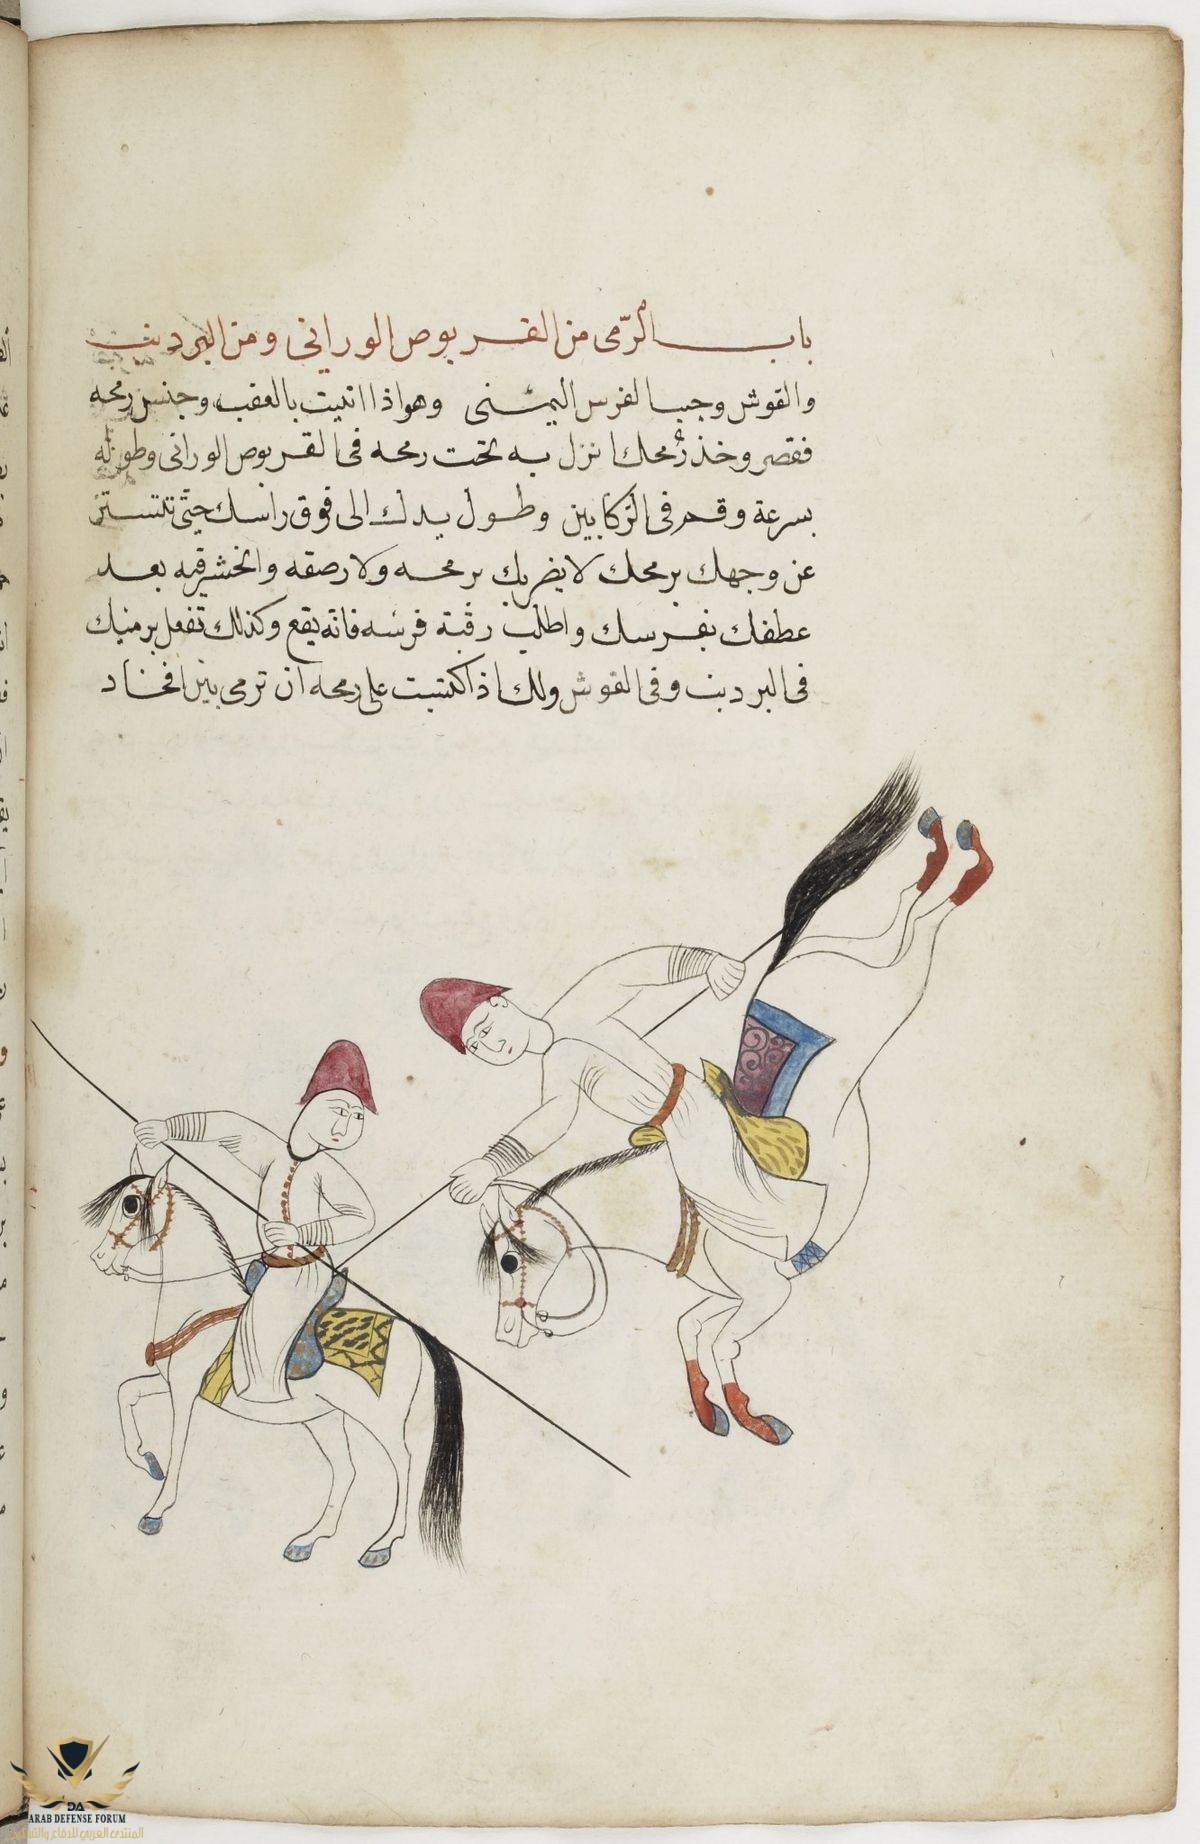 باب الرّمى من القربوص الورانى ومن البردبنت
والقوش وجب الفرس اليمنى وهو اذا اتيت بالعقب وجنس رمحه
فقصر وخذ رُمحك انزل به تحت رمحه فى القربوص الورانى وطوله
بسرعة وقم فى الركابين وطول يدك الى فوق راسك حتى تلتستتر
عن وجهك برمحك لا يضربك برمحه ولا رصقه وانخشر فيه بعد
عطفك بفرسك واطلب رقبة فرسه فانه يقع وكذلك تفعل برميك
فى البردبنت وفى القوش ولك اذا كتبت على رمحه ان ترمى بين افخاد
DA
ARAB DEFENSE FORUM
المنتدى العربي للدفاع والتسليح